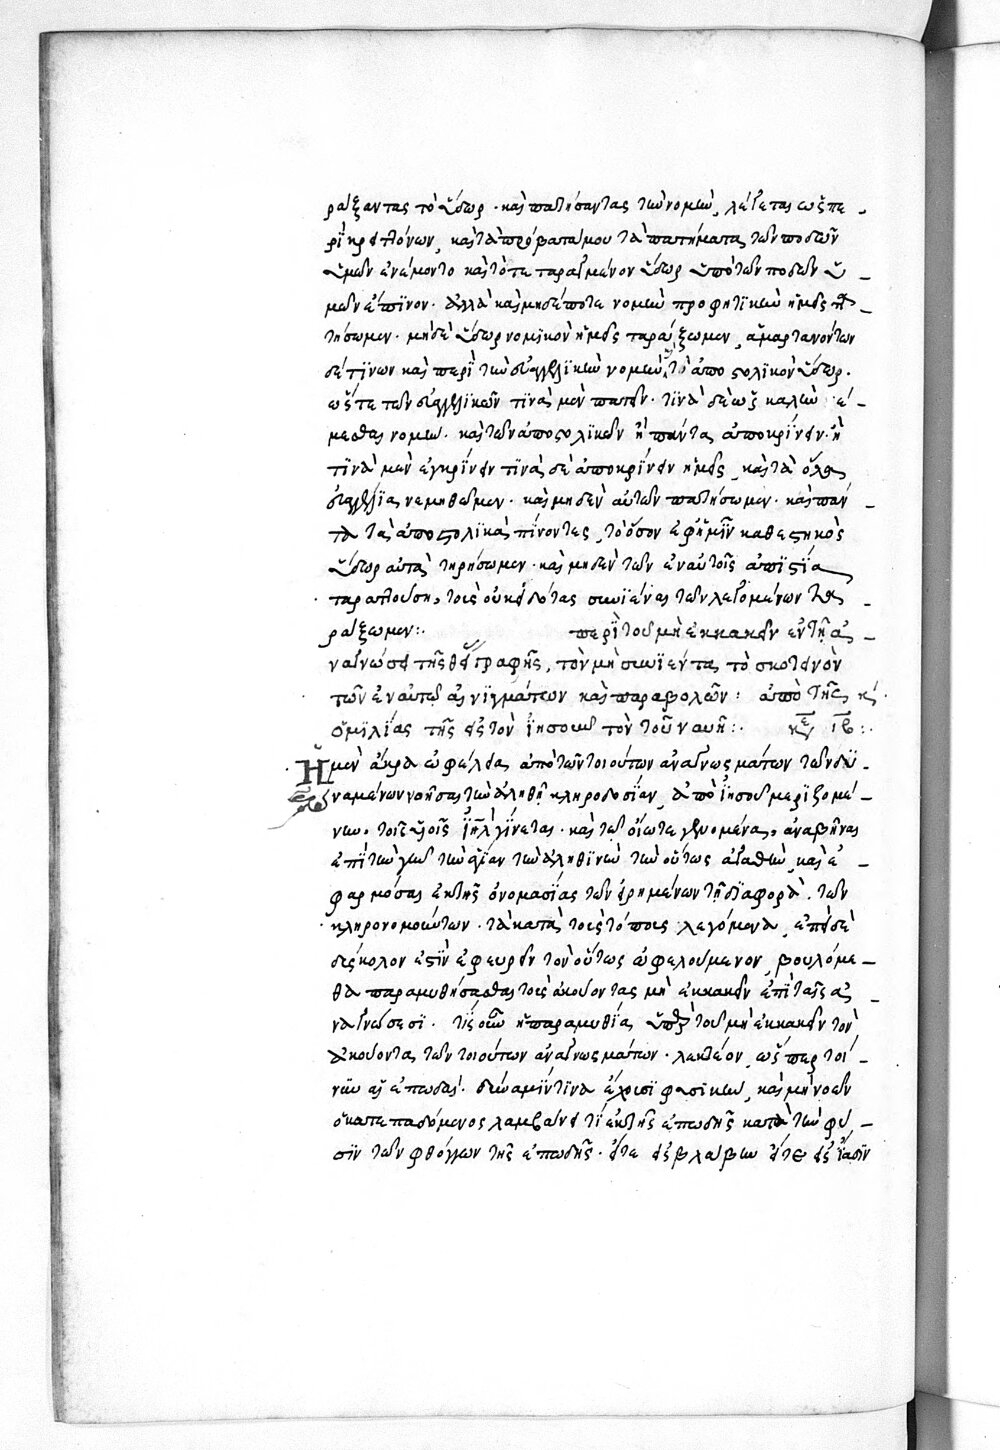 ράξαντας τὸ ὕδωρ · καὶ πατήσαντας τὴν νομὴν, λέγεται ὡς πε
ρὶ κρειττόνων, καὶ τὰ πρόβατά μου τὰ πατήματα τῶν ποδῶν
ὑμῶν ἐνέμοντο καὶ τὸ τεταραγμένον ὕδωρ ὑπὸ τῶν ποδῶν ὑ
μῶν ἔπινον · ἀλλὰ καὶ μηδέποτε νομὴν προφητικὴν ἡμεῖς πα
τήσωμεν · μηδὲ ὕδωρ νομικὸν ἡμεῖς ταράξωμεν, ἁμαρτανόντων
δέ τινων καὶ περὶ τὴν εὐαγγελικὴν νομὴν, τὸ ἀποστολικὸν ὕδωρ ·
ὥστε τῶν εὐαγγελικῶν τινὰ μὲν πατεῖν · τινὰ δὲ ὡς καλὴν
νέμεσθαι νομὴν · καὶ τῶν ἀποστολικῶν ἢ πάντα ἀποκρίνειν · ἢ
τινὰ μὲν ἐγκρίνειν τινὰ δὲ ἀποκρίνειν ἡμεῖς, καὶ τὰ ὅλα
εὐαγγέλια νεμηθῶμεν · καὶ μηδὲν αὐτῶν πατήσωμεν · καὶ πάν
τα τὰ ἀποστολικὰ πίνοντες, τὸ ὅσον ἐφ' ἡμῖν καθεστηκὸς
ὕδωρ αὐτὰ τηρήσωμεν · καὶ μηδὲν τῶν ἐν αὐτοῖς ἀπιστίᾳ
ταραττούσῃ, τοὺς οὐκ εἰδότας συνιέναι τῶν λεγομένων τα
ράξωμεν :· περὶ τοῦ μὴ ἐκκακεῖν ἐν τῇ ἀ
ναγνώσει τῆς θείας γραφῆς, τὸν μὴ συνιέντα τὸ σκοτεινὸν
τῶν ἐν αὐτῷ αἰνιγμάτων καὶ παραβολῶν : ἀπὸ τῆς κ΄
ὁμιλίας τῆς εἰς τὸν ἰησοῦν τὸν τοῦ ναυῆ :· κε ιβ :·
Ἡ μὲν ἄκρα ὠφέλεια ἀπὸ τῶν τοιούτων ἀναγνωσμάτων τῶν δυ
ναμένων νοῆσαι τὴν ἀληθῆ κληροδοσίαν, ἀπὸ ἰησοῦ μεριζομέ
νην, τοῖς υἱοῖς ἰηλ γίνεται · καὶ τῷ οἵῳ τε γενομένῳ ἀναβῆναι
ἐπὶ τὴν γῆν τὴν ἁγίαν τὴν ἀληθινὴν τὴν οὕτως ἀγαθὴν, καὶ ἐ
φαρμόσαι ἐκ τῆς ὀνομασίας τῶν εἰρημένων τῇ διαφορᾷ, τῶν
κληρονομούντων · τὰ κατὰ τοὺς τόπους λεγόμενα, ἐπεὶ δὲ
δύσκολον ἐστὶν ἐφευρεῖν τὸν οὕτως ὠφελούμενον, βουλόμε
θα παραμυθήσασθαι τοὺς ἀκούοντας μὴ ἐκκακεῖν ἐπὶ ταῖς ἀ
ναγνώσεσι · τίς οὖν ἡ παραμυθία ὑπὲρ τοῦ μὴ ἐκκακεῖν τὸν
ἀκούοντα τῶν τοιούτων ἀναγνωσμάτων · λεκτέον, ὥσπερ τοί
νυν αἱ ἐπῳδαὶ · δύναμίν τινα ἔχουσι φυσικὴν, καὶ μὴ νοῶν
ὁ κατεπᾳδόμενος λαμβάνει τι ἐκ τῆς ἐπῳδῆς κατὰ τὴν φύ
σιν τῶν φθόγγων τῆς ἐπῳδῆς · εἴτε εἰς βλάβην εἴτε εἰς ἴασιν